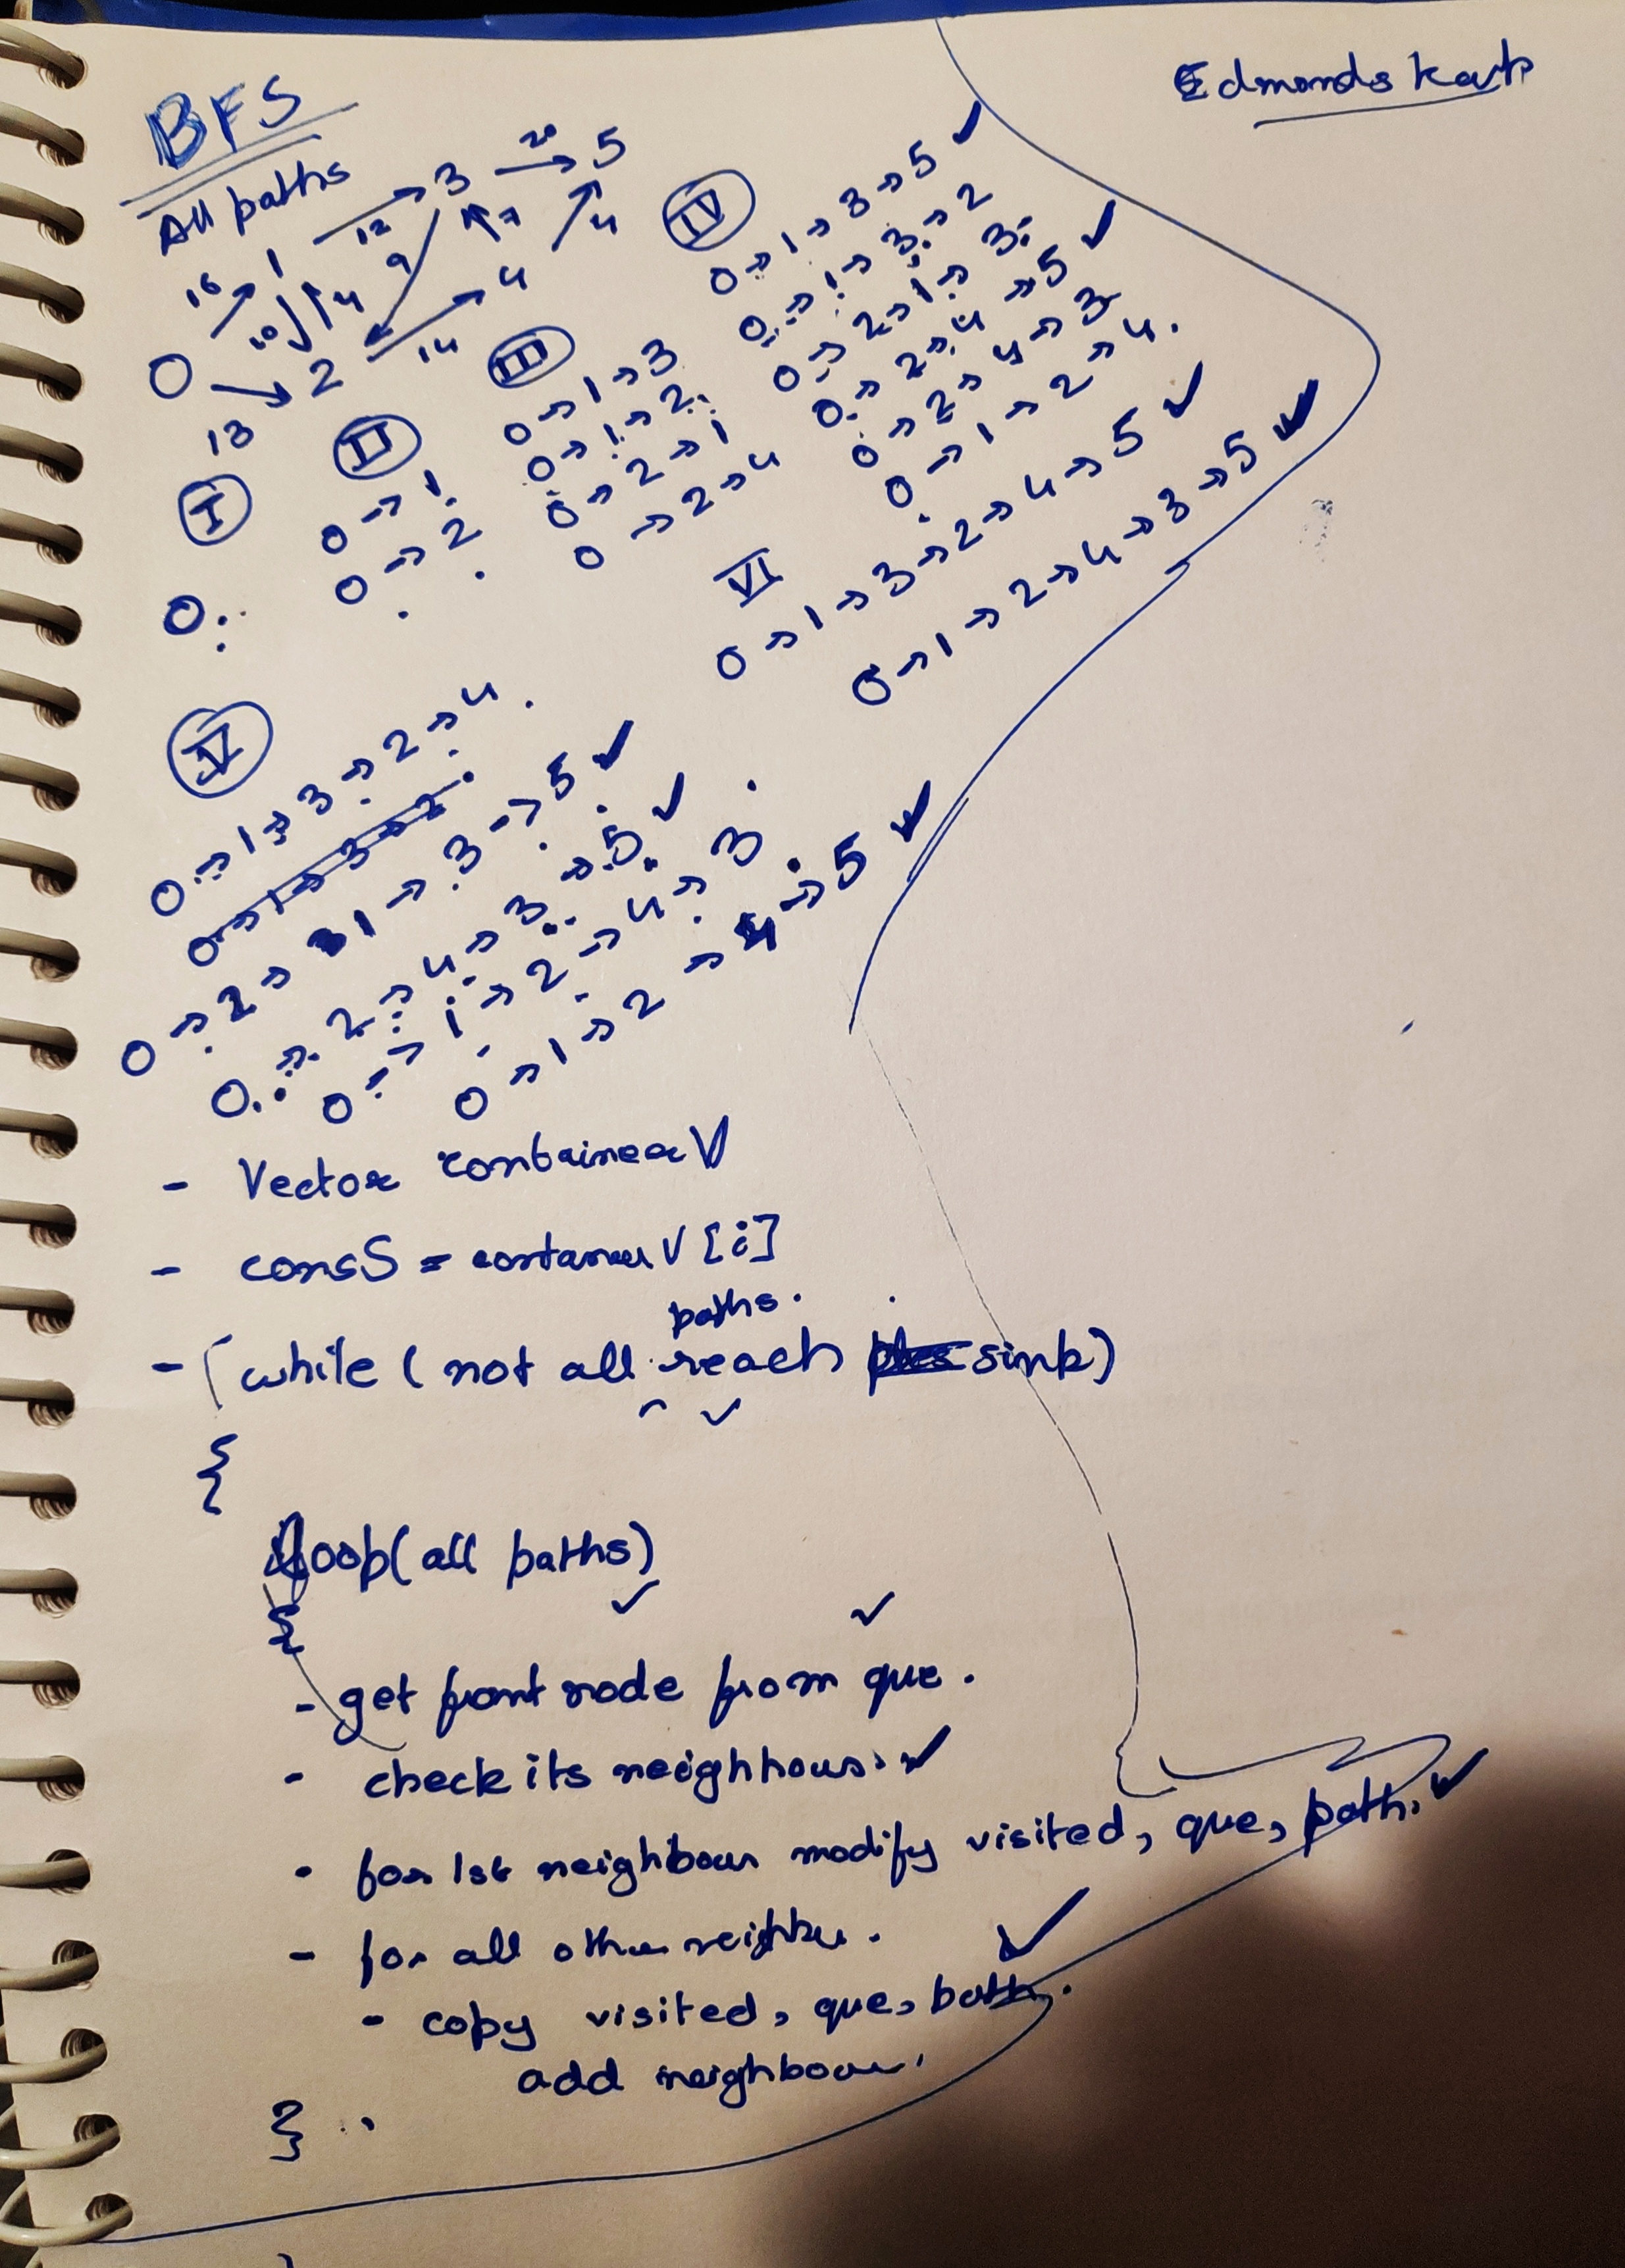 Edmonds Karp
BFS
All paths
16 1 12 3 20 5
10 4 9 7 4
0 13 2 14 4
I
0
II
0 → 1
0 → 2
III
0 → 1 → 3
0 → 1 → 2
0 → 2 → 1
0 → 2 → 4
IV
0 → 1 → 3 → 5 ✓
0 → 1 → 3 → 2
0 → 2 → 1 → 3
0 → 2 → 4 → 5 ✓
0 → 2 → 4 → 3
0 → 1 → 2 → 4
V
0 → 1 → 3 → 2 → 4
0 → 1 → 3 → 2
0 → 2 → 1 → 3 → 5 ✓
0 → 2 → 4 → 3 → 5 ✓
0 → 1 → 2 → 4 → 3
0 → 1 → 2 → 4 → 5 ✓
VI
0 → 1 → 3 → 2 → 4 → 5 ✓
0 → 1 → 2 → 4 → 3 → 5 ✓
- Vector container V
- consS = container V [i]
- while ( not all paths reach sink)
{
loop(all paths)
{
- get front node from que.
- check its neighbours. ✓
- for 1st neighbour modify visited, que, path. ✓
- for all other neighbour. ✓
- copy visited, que, path.
add neighbour.
}